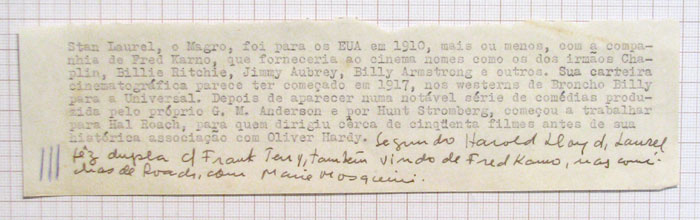 Stan Laurel, o Magro, foi para os EUA em 1910, mais ou menos, com a compa-
nhia de Fred Karno, que forneceria ao cinema nomes como os dos irmãos Cha-
plin, Billie Ritchie, Jimmy Aubrey, Billy Armstrong e outros. Sua carreira
cinematográfica parece ter começado em 1917, nos westerns de Broncho Billy
para a Universal. Depois de aparecer numa notável série de comédias produ-
zida pelo próprio G. M. Anderson e por Hunt Stromberg, começou a trabalhar
para Hal Roach, para quem dirigiu cêrca de cinqüenta filmes antes de sua
histórica associação com Oliver Hardy. Segundo Harold Lloyd, Laurel
fêz dupla c/ Frank Terry, também vindo de Fred Karno, nas comé-
dias de Roach, com Marie Mosquini.